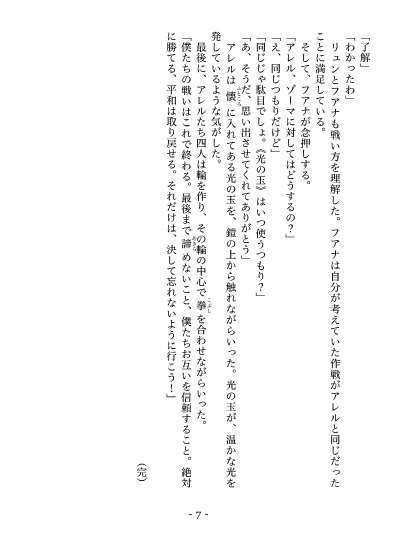 「了解」
「わかったわ」
リュシとフアナも戦い方を理解した。フアナは自分が考えていた作戦がアレルと同じだった
ことに満足している。
そして、フアナが念押しする。
「アレル、ゾーマに対してはどうするの?」
「え、同じつもりだけど」
「同じじゃ駄目でしょ。《光の玉》はいつ使うつもり?」
「あ、そうだ、思い出させてくれてありがとう」
アレルは懐に入れてある光の玉を、鎧の上から触れながらいった。光の玉が、温かな光を
発しているような気がした。
最後に、アレルたち四人は輪を作り、その輪の中心で拳を合わせながらいった。
「僕たちの戦いはこれで終わる。最後まで諦めないこと、僕たちお互いを信頼すること。絶対
に勝てる、平和は取り戻せる。それだけは、決して忘れないように行こう!」
(完)
- 7 -